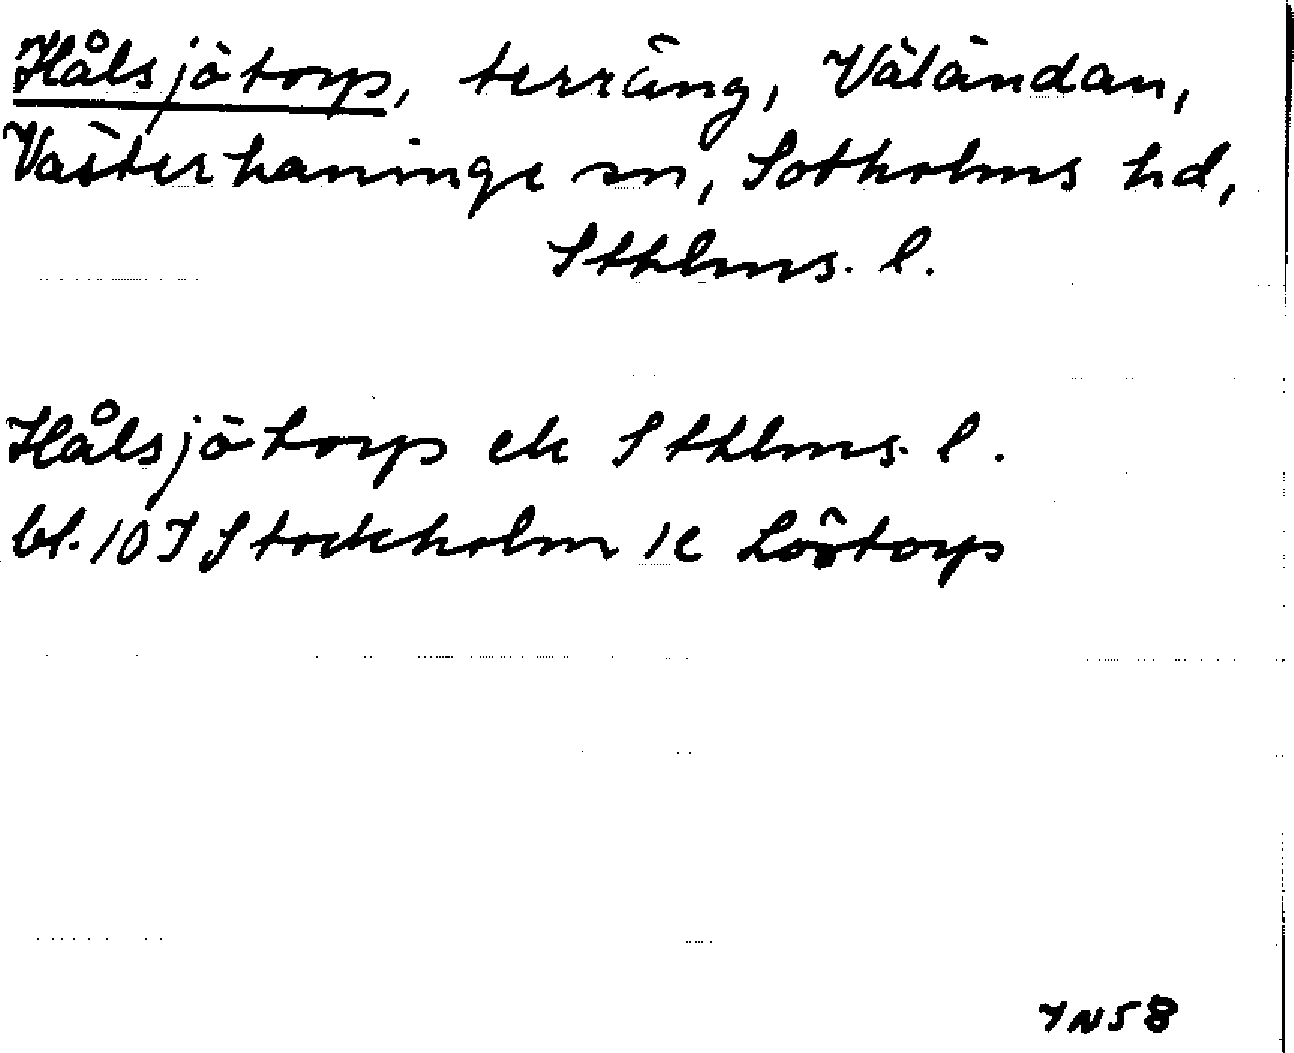 Hålsjötorp, terräng, Väländan,
Västerhaninge sn, Sotholms hd,
Sthlms. l.
Hålsjötorp ek Sthlms. l.
bl. 10I Stockholm 1c Lövtorp
IN58